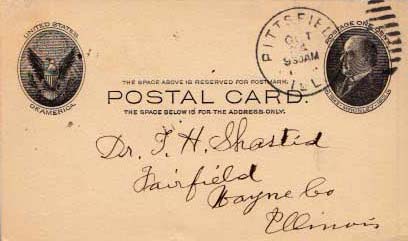 UNITED STATES
OF AMERICA
PITTSFIELD
OCT
24
930AM
ILL.
POSTAGE ONE CENT
THE SPACE ABOVE IS RESERVED FOR POSTMARK.
POSTAL CARD.
THE SPACE BELOW IS FOR THE ADDRESS ONLY.
Dr. T. H. Shastid
Fairfield
Wayne Co
Illinois